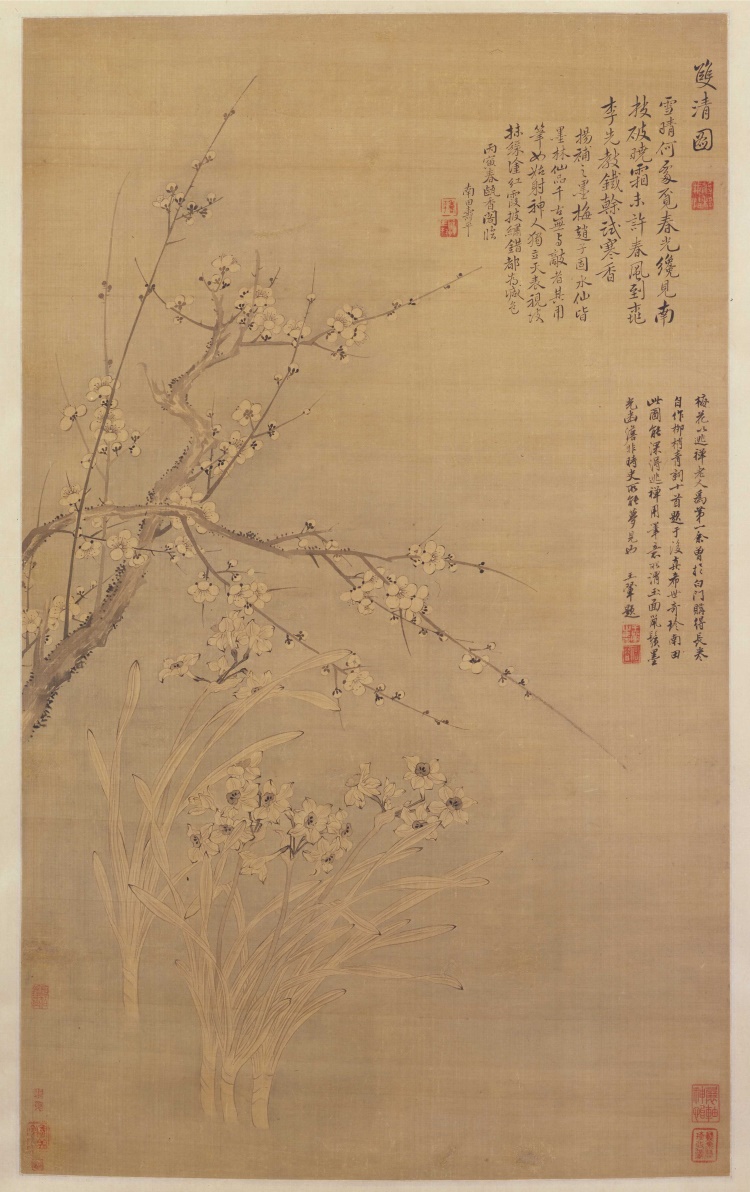 雙清圖
雪晴何處覓春光纔見南
技破曉霜未許春風到桃
李先教鐵榦試寒香
揚補之墨梅趙子固水仙皆
墨林仙品千古無與敵者其用
筆如姑射神人獨立天表視彼
抹綠塗紅霞披繡錯都為減色
丙寅春甌香閣臨
南田壽平
梅花以逃禪老人為第一余曾於白門購得長卷
自作柳梢青詞十首題于後真希世奇珍南田
此圖能深得逃禪用筆意水漬玉面
光幽澹非時史所能夢見也 王翬題